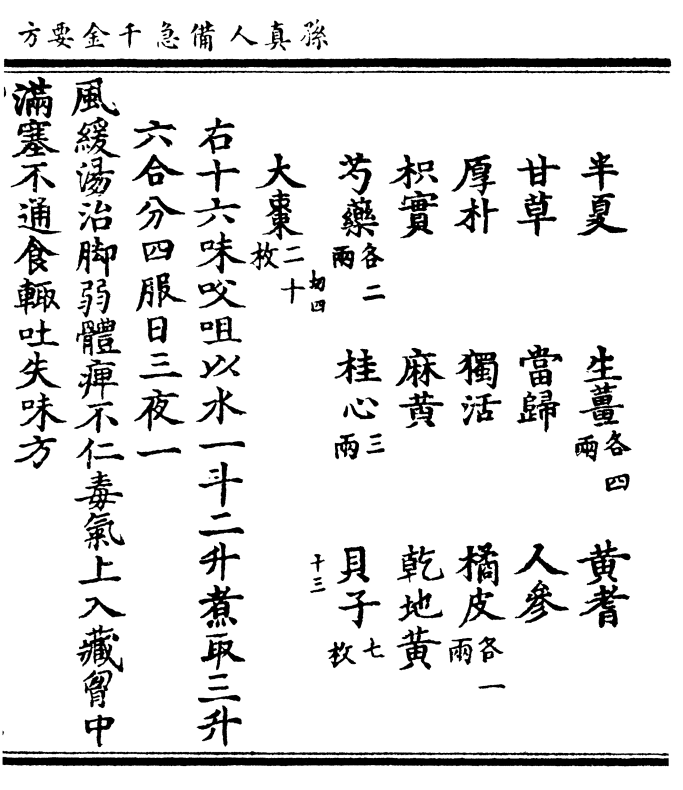 孫真人備急千金要方
半夏　生薑各四兩　黃耆
甘草　當歸　人參
厚朴　獨活　橘皮各一兩
枳實　麻黃　乾地黃
芍藥各二兩　桂心三兩　貝子七枚
切四　十三
大棗二十枚
右十六味㕮咀以水一斗二升煮取三升
六合分四服日三夜一
風緩湯治脚弱體痺不仁毒氣上入藏胷中
滿塞不通食輙吐失味方